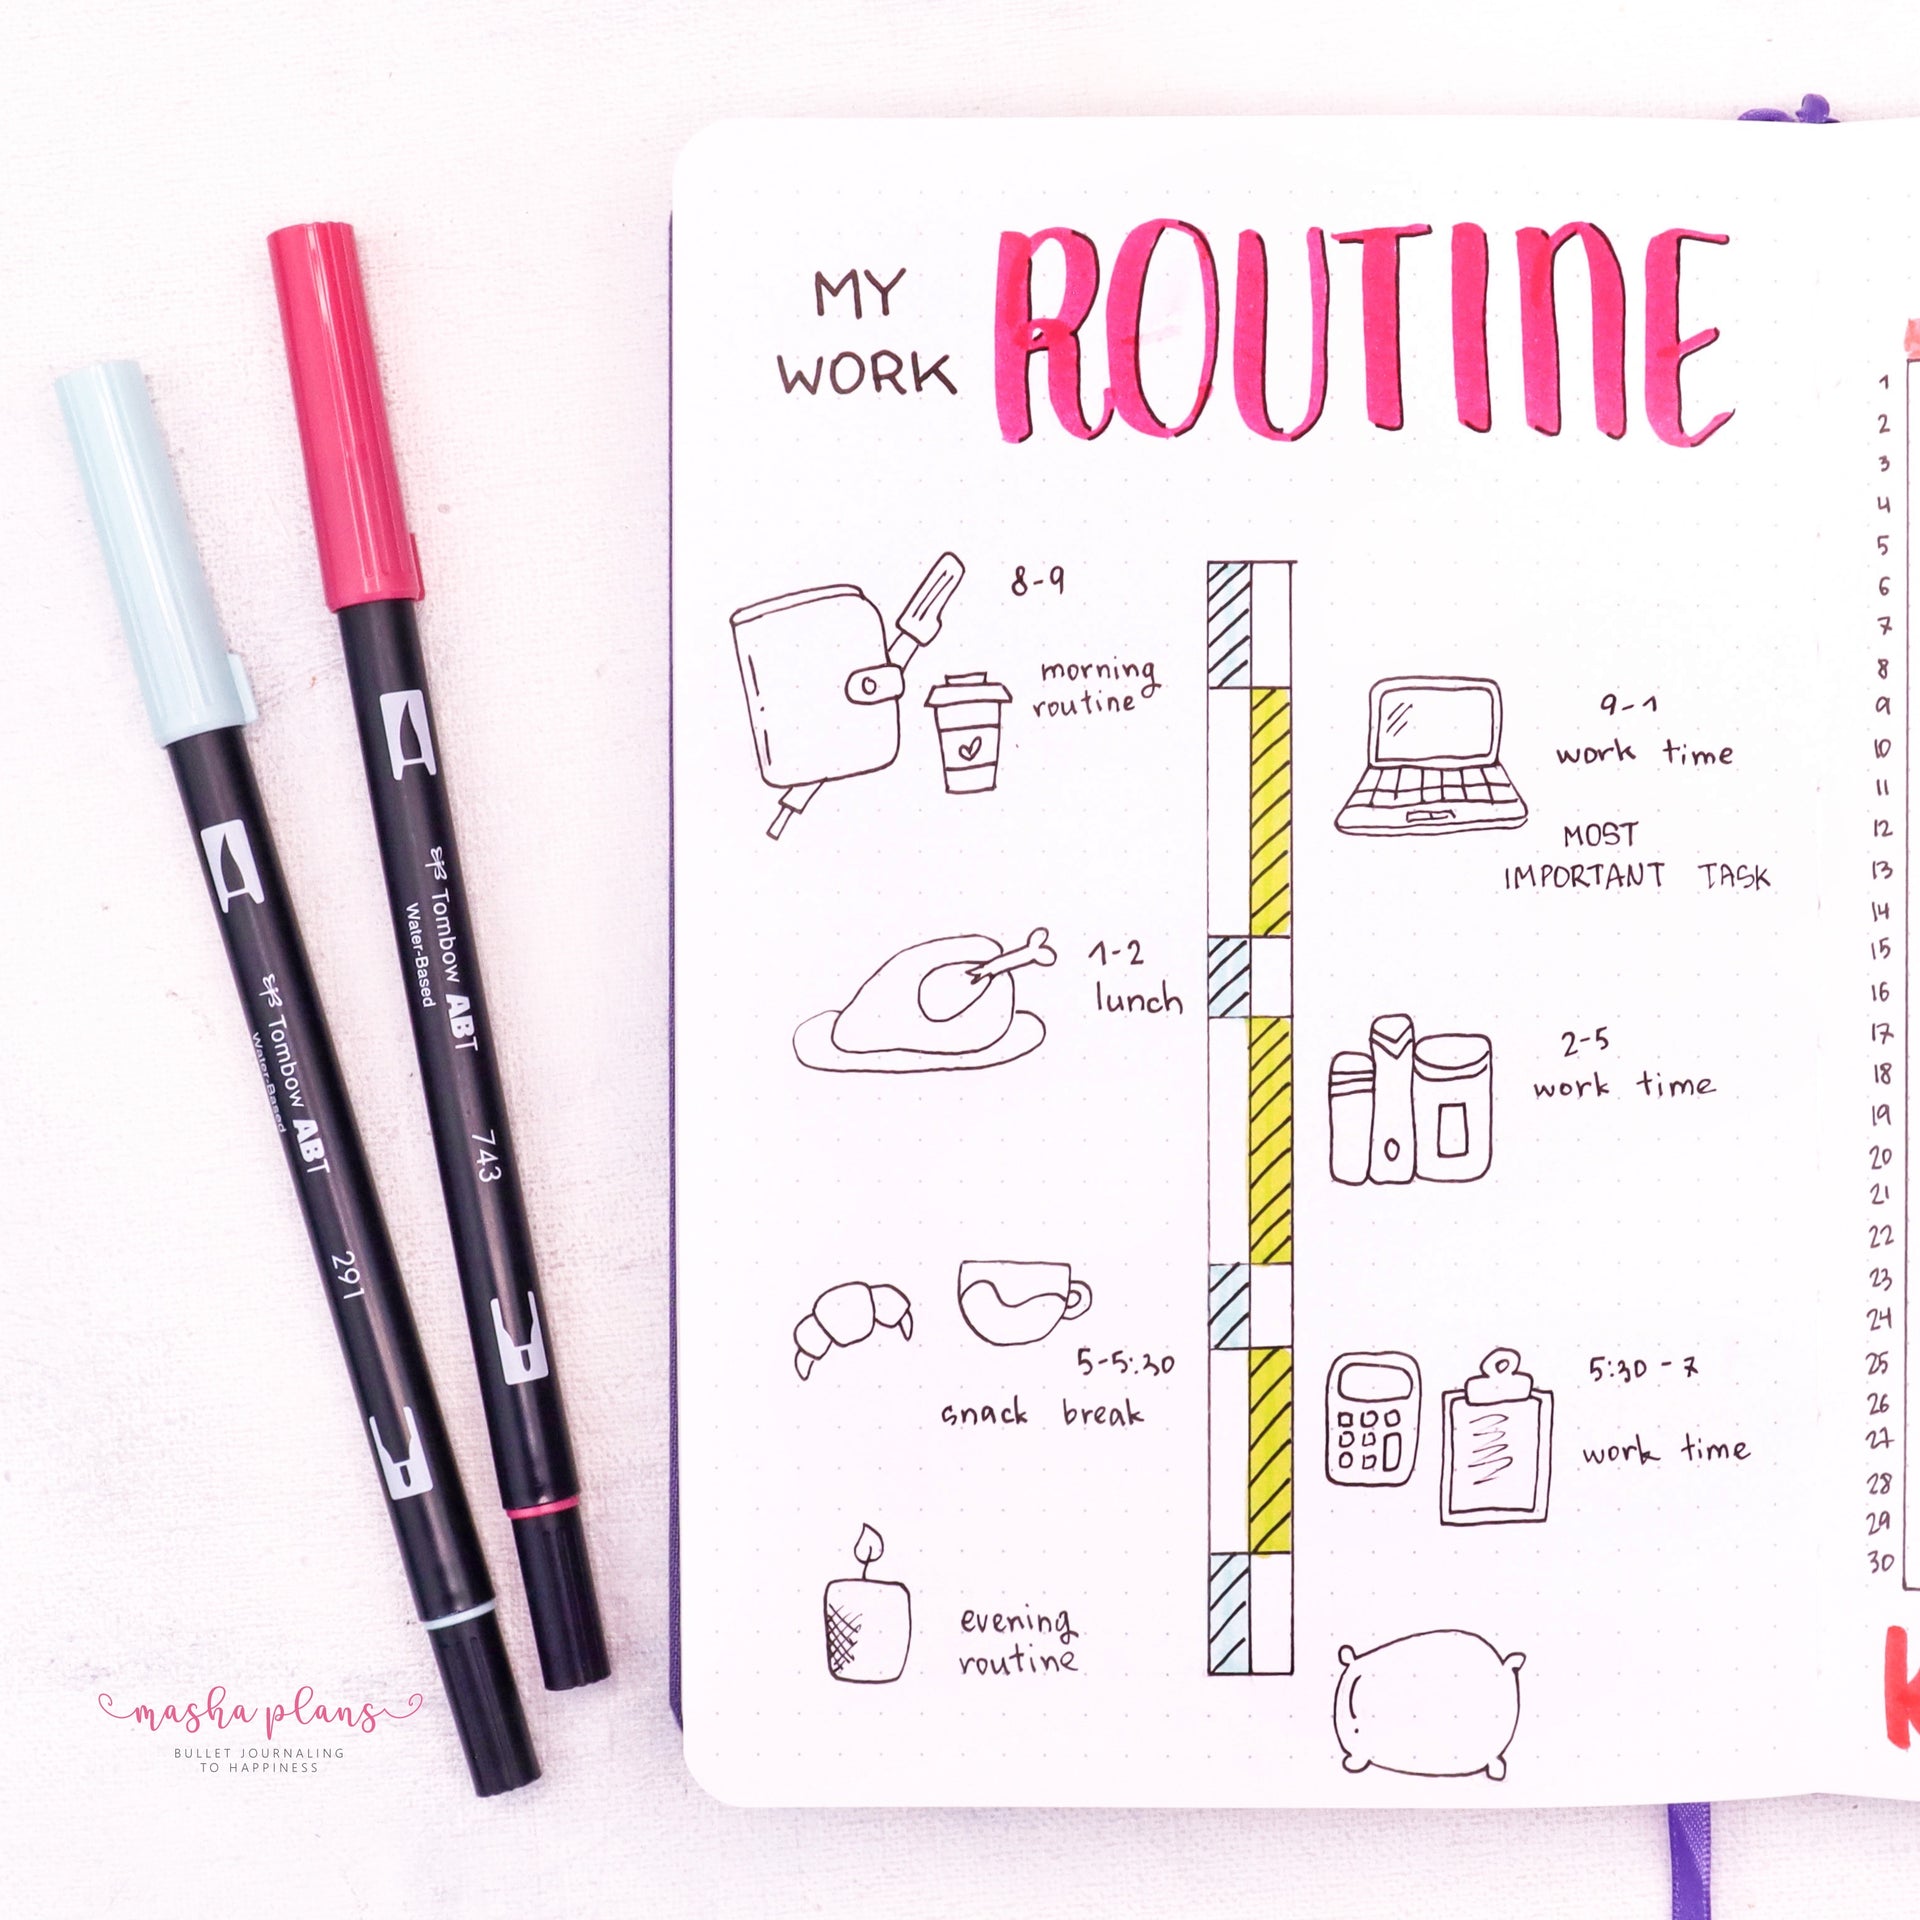 MY
WORK
ROUTINE
8-9
morning
routine
9-1
work time
MOST
IMPORTANT TASK
1-2
lunch
2-5
work time
5-5:30
snack break
5:30-7
work time
evening
routine
1
2
3
4
5
6
7
8
9
10
11
12
13
14
15
16
17
18
19
20
21
22
23
24
25
26
27
28
29
30
Tombow ABT 743
Water-Based
Tombow ABT 291
Water-Based
masha plans
BULLET JOURNALING
TO HAPPINESS